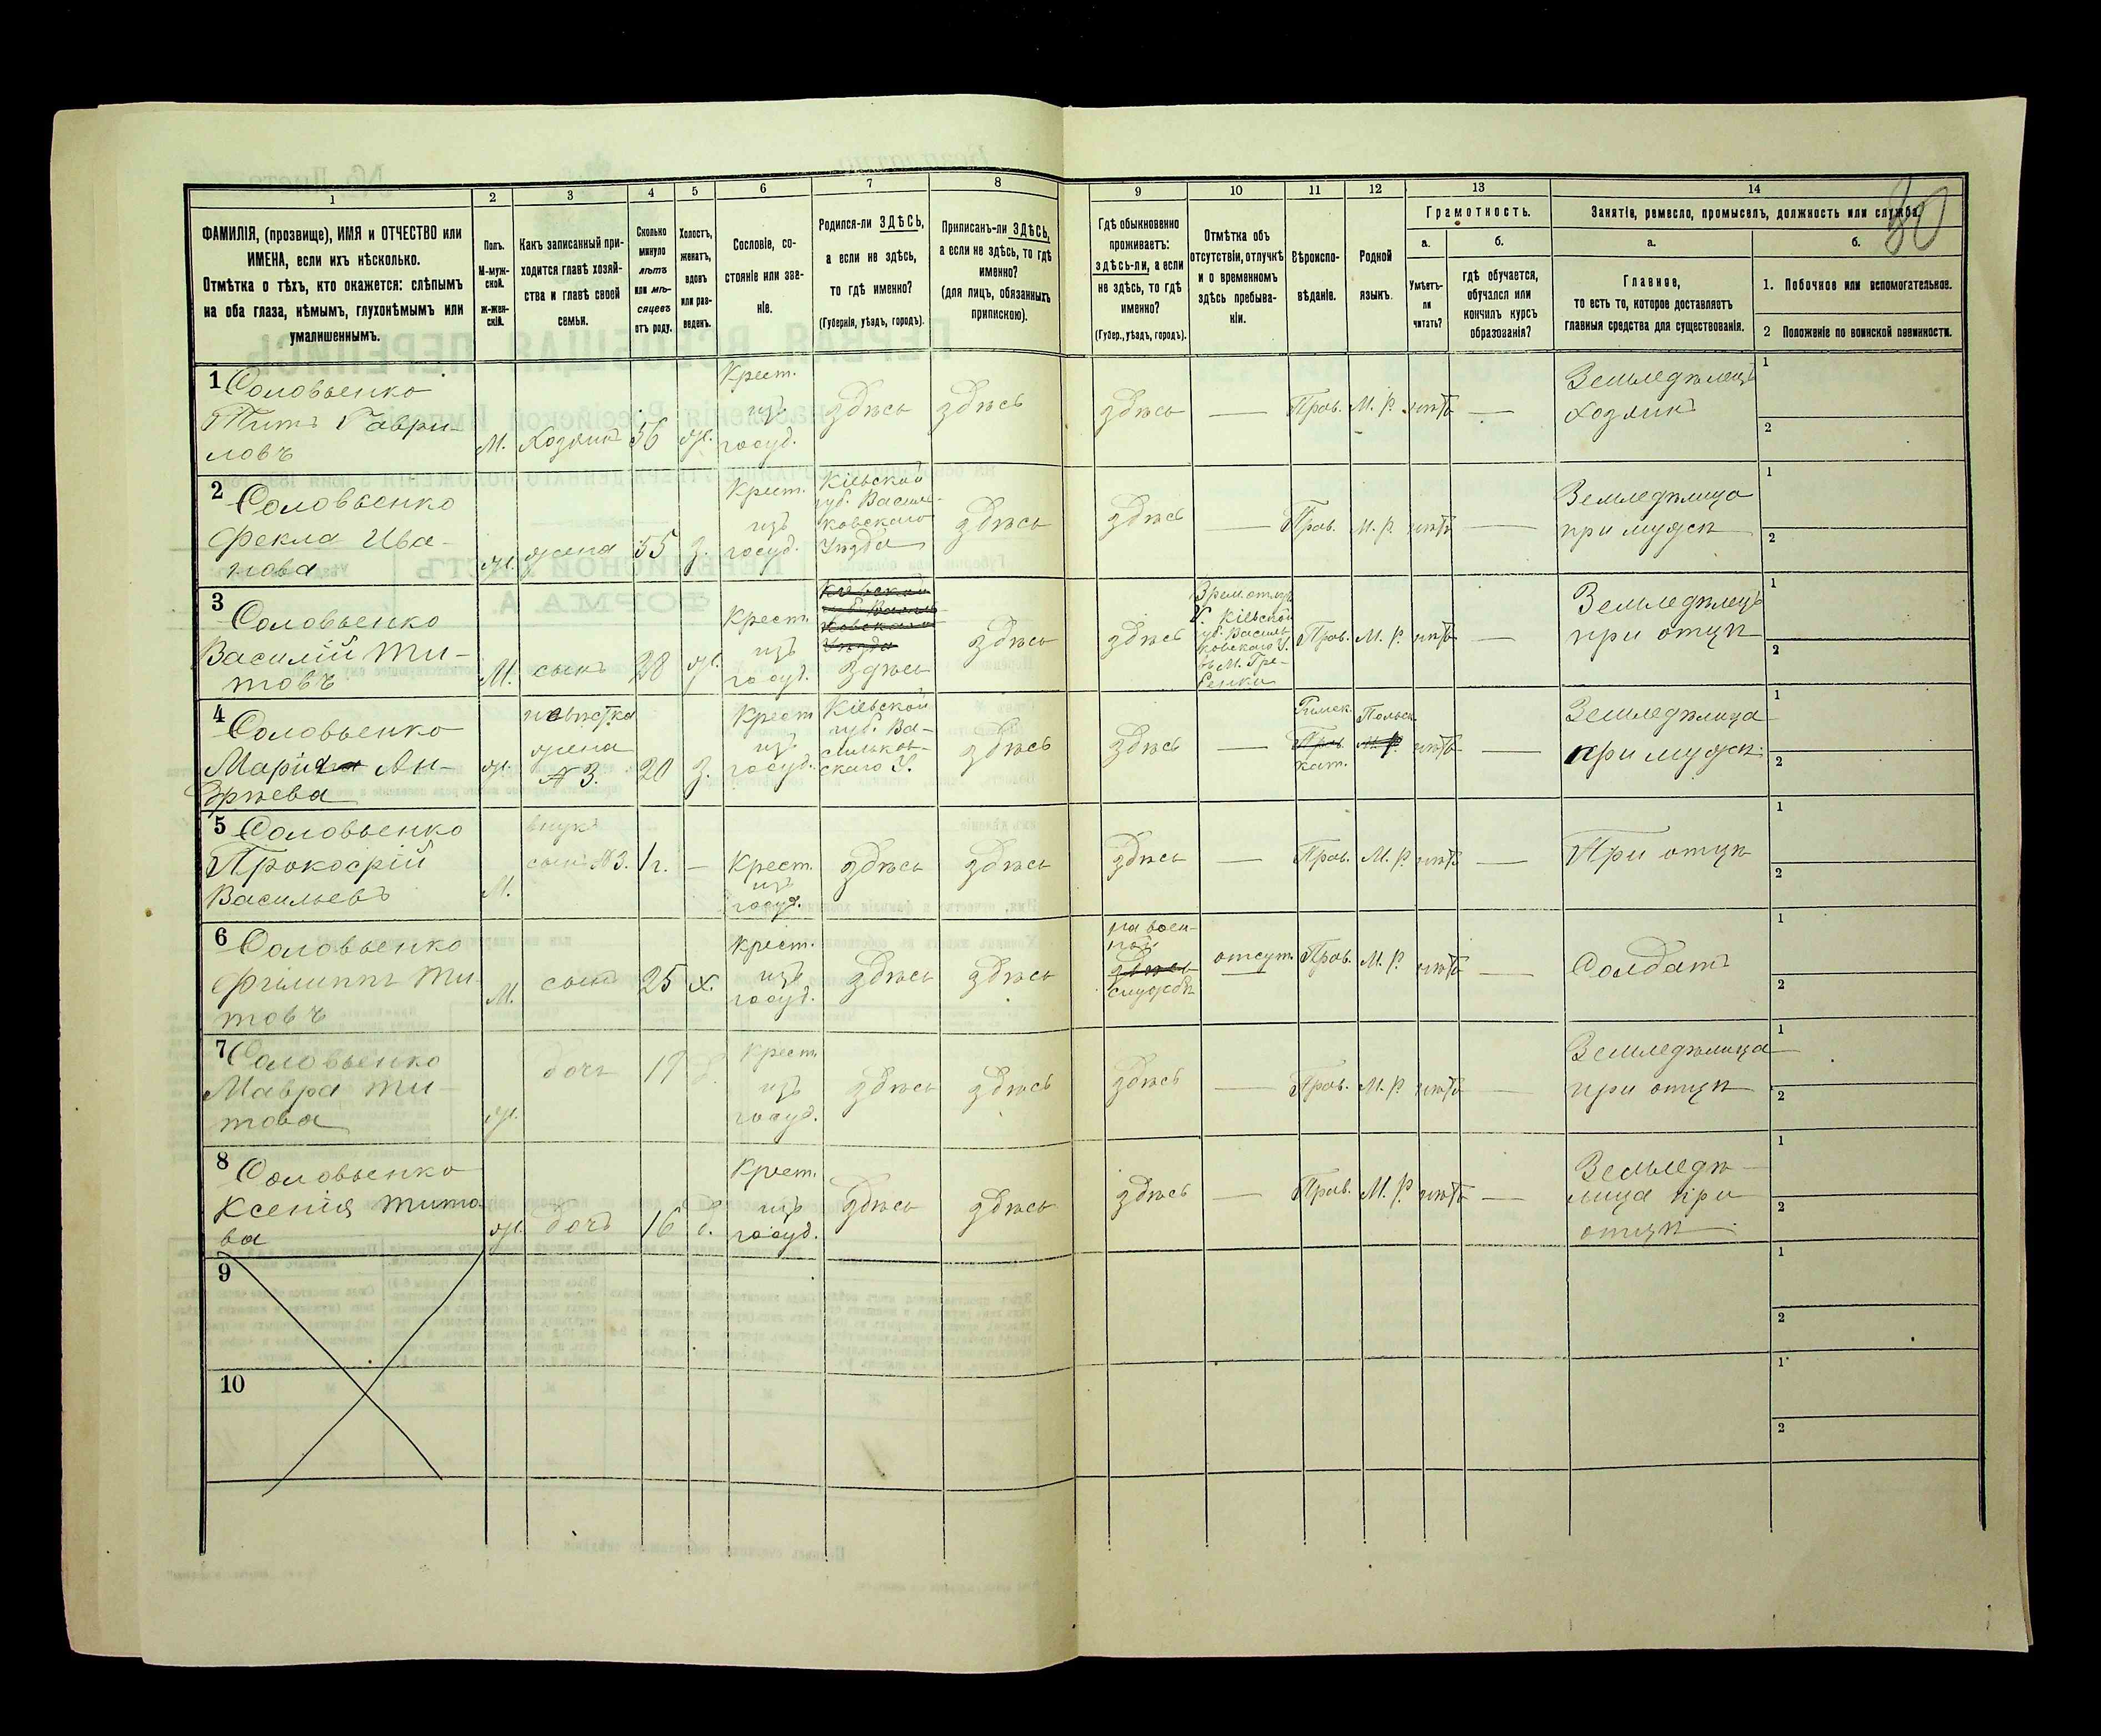 80
1
2
3
4
5
6
7
8
9
10
11
12
13
14
ФАМИЛІЯ, (прозвище), ИМЯ и ОТЧЕСТВО или
ИМЕНА, если ихъ нѣсколько.
Отмѣтка о тѣхъ, кто окажется: слѣпымъ
на оба глаза, нѣмымъ, глухонѣмымъ или
умалишеннымъ.
Полъ.
М-муж-
ской.
ж-жен-
скій.
Какъ записанный при-
ходится главѣ хозяй-
ства и главѣ своей
семьи.
Сколько
минуло
лѣтъ
или мѣ-
сяцевъ
отъ роду.
Холостъ,
женатъ,
вдовъ
или раз-
веденъ.
Сословіе, со-
стояніе или зва-
ніе.
Родился-ли ЗДѢСЬ,
а если не здѣсь,
то гдѣ именно?
(Губернія, уѣздъ, городъ).
Приписанъ-ли ЗДѢСЬ,
а если не здѣсь, то гдѣ
именно?
(для лицъ, обязанныхъ
припискою).
Гдѣ обыкновенно
проживаетъ:
здѣсь-ли, а если
не здѣсь, то гдѣ
именно?
(Губер., уѣздъ, городъ).
Отмѣтка объ
отсутствіи, отлучкѣ
и о временномъ
здѣсь пребыва-
ніи.
Вѣроиспо-
вѣданіе.
Родной
языкъ.
Грамотность.
а.
Умѣетъ-
ли
читать?
б.
гдѣ обучается,
обучался или
кончилъ курсъ
образованія?
Занятіе, ремесло, промыселъ, должность или служба.
а.
Главное,
то есть то, которое доставляетъ
главныя средства для существованія.
б.
1. Побочное или вспомогательное.
2 Положеніе по воинской повинности.
1 Соловьенко
Титъ Гаври-
ловъ
М.
Хозяинъ
56
ж.
Крест.
изъ
госуд.
здѣсь
здѣсь
здѣсь
—
Прав.
М. Р.
нѣтъ
—
Земледѣлецъ
хозяинъ
1
2
2 Соловьенко
Фекла Ива-
нова
ж.
жена
55
з.
Крест.
изъ
госуд.
Кіевской
губ. Василь-
ковскаго
Уѣзда
здѣсь
здѣсь
—
Прав.
М. Р.
нѣтъ
—
Земледѣлица
при мужѣ
1
2
3 Соловьенко
Василій Ти-
товъ
М.
сынъ
28
ж.
Крест.
изъ
госуд.
Кіевской
губ. Василь
ковскаго
Уѣзда
здѣсь
здѣсь
здѣсь
Кіевской
губ. Василь
ковскаго У.
въ М. Гре-
бенки
Прав.
М. Р.
нѣтъ
—
Земледѣлецъ
при отцѣ
1
2
4 Соловьенко
Марія Ан-
дрѣева
ж.
невѣстка
жена
№ 3.
20
з.
Крест
изъ
госуд.
Кіевской
губ. Ва-
сильков-
скаго У.
здѣсь
здѣсь
—
Римск.
Прав.
кат.
Польск.
М. Р.
нѣтъ
—
Земледѣлица
при мужѣ
1
2
5 Соловьенко
Прокофій
Васильевъ
М.
внукъ
сынъ №3.
1 г.
—
Крест.
изъ
госуд.
здѣсь
здѣсь
здѣсь
—
Прав.
М. Р.
нѣтъ
—
При отцѣ
1
2
6 Соловьенко
Филиппъ Ти-
товъ
М.
сынъ
25
х.
Крест.
изъ
госуд.
здѣсь
здѣсь
на воен-
ной
здѣсь
службѣ
отсут.
Прав.
М. Р.
нѣтъ
—
Солдатъ
1
2
7 Соловьенко
Мавра Ти-
това
ж.
дочь
Крест
изъ
госуд.
здѣсь
здѣсь
здѣсь
—
Прав.
М. Р.
нѣтъ
—
Земледѣлица
при отцѣ
1
2
8 Соловьенко
Ксенія Тито-
ва
ж.
дочь
16
д.
Крест.
изъ
госуд.
здѣсь
здѣсь
здѣсь
—
Прав.
М. Р.
нѣтъ
—
Земледѣ-
лица при
отцѣ
1
2
9
1
2
10
1
2